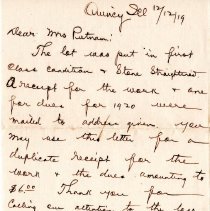 Quincy Ill 12/12/19
Dear Mrs Putnam:
The lot was put in first
class condition & Stone Straightened
A receipt for the work & one
for dues for 1920 were
mailed to address given you
may use this letter for a
duplicate receipt for the
work & the dues amounting to
$6.00 Thank you for
calling our attention to the